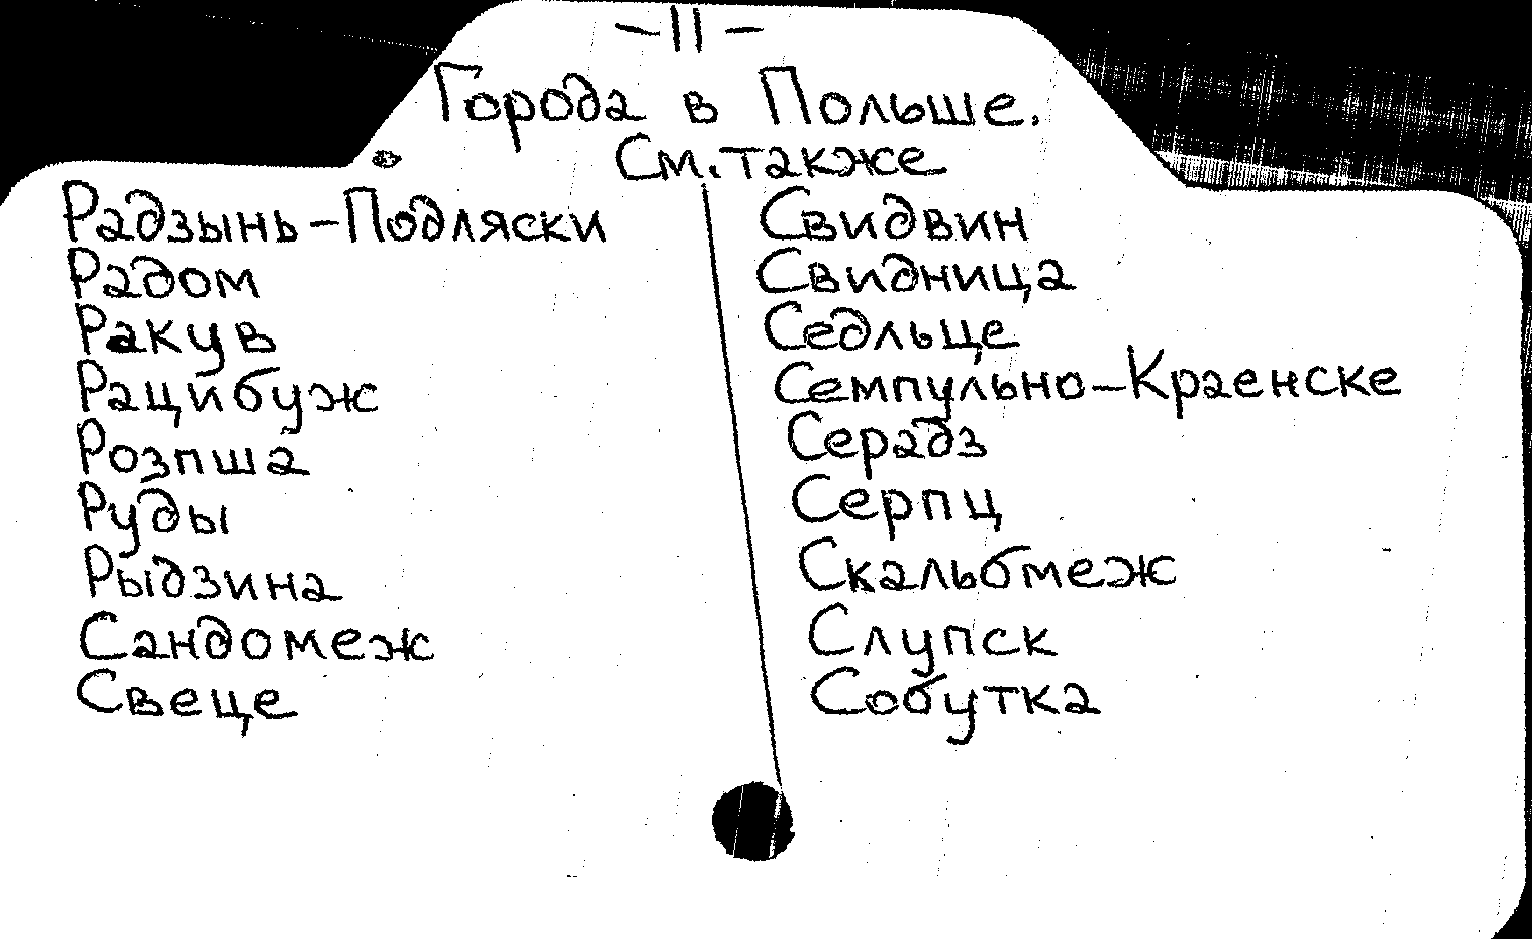 -11-
Города в Польше.
См. также
Радзынь-Подляски
Радом
Ракув
Рацибуж
Розпша
Руды
Рыдзина
Сандомеж
Свеце
Свидвин
Свидница
Седльце
Семпульно-Краенске
Серадз
Серпц
Скальбмеж
Слупск
Собутка